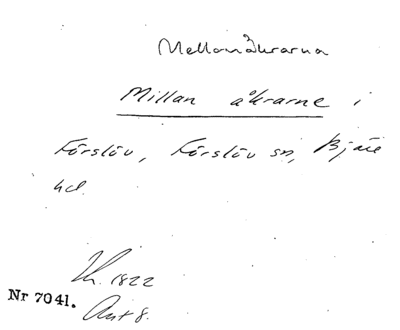 Mellanåkrarna
Millan åkrarne i
Förslöv, Förslöv sn, Bjäre
hd.
1822
Nr 7041.
Akt 8.